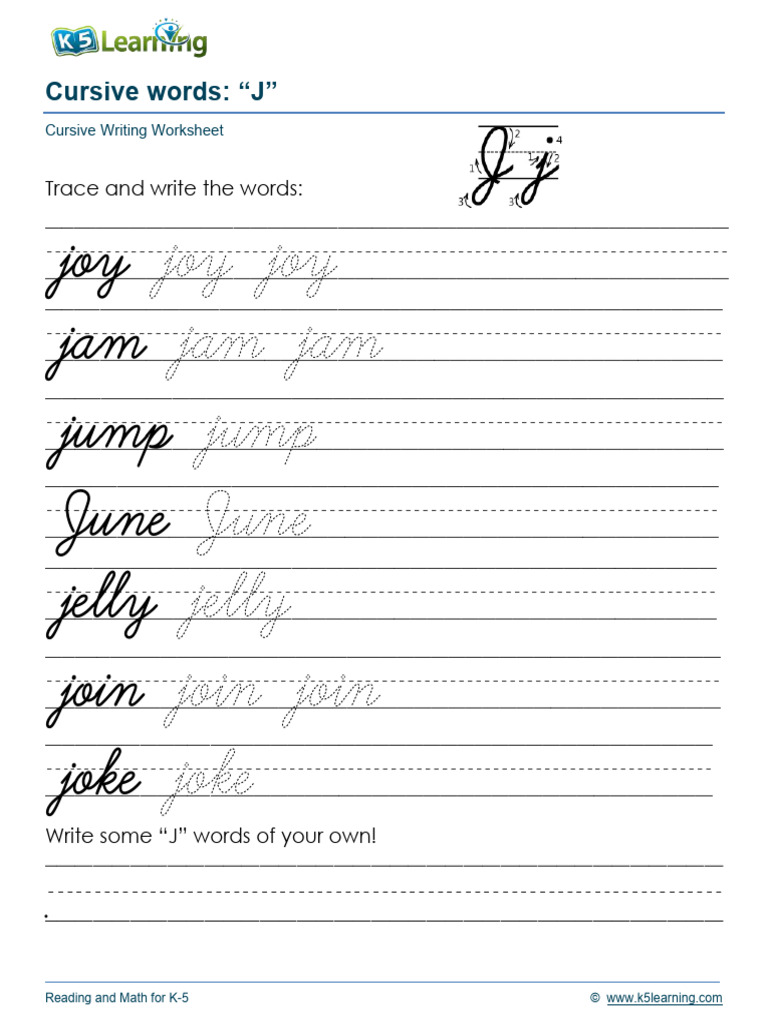 K5 Learning
Cursive words: “J”
Cursive Writing Worksheet
J j 1 2 3 1 2 3 4
Trace and write the words:
joy joy joy
jam jam jam
jump jump
June June
jelly jelly
join join join
joke joke
Write some “J” words of your own!
Reading and Math for K-5 © www.k5learning.com